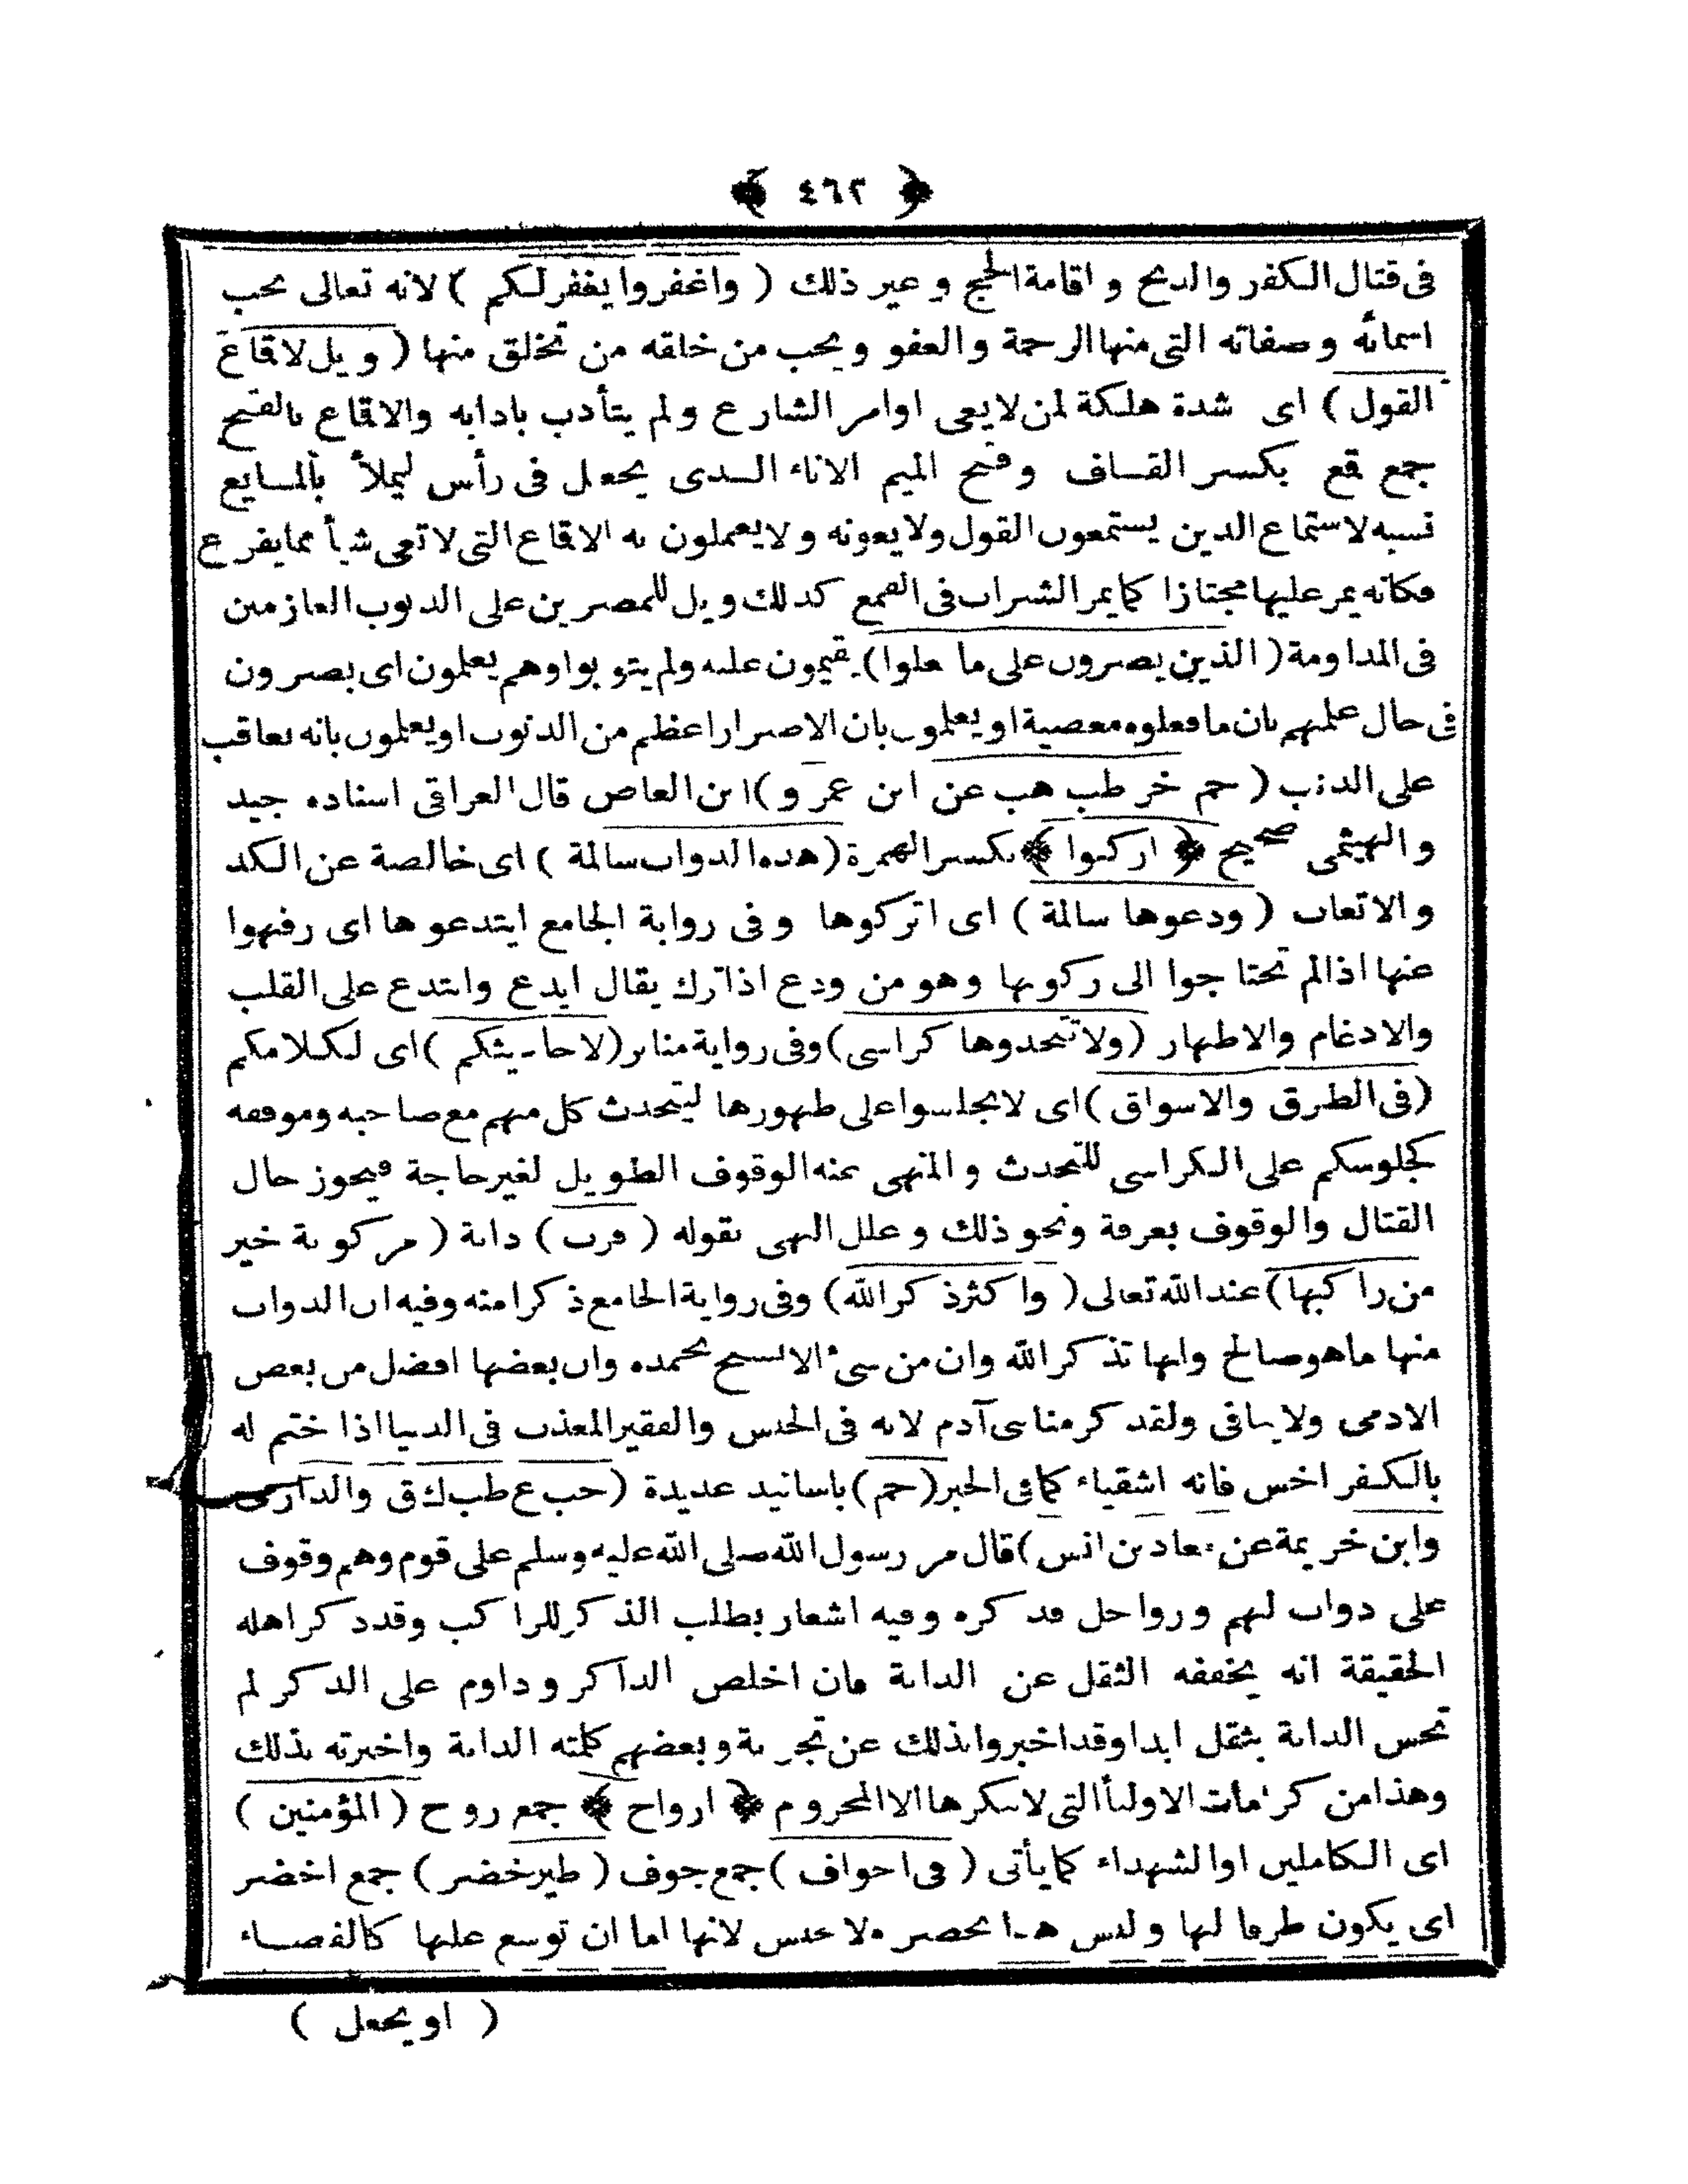 ﴿ ٤٦٢ ﴾
فى قتال الكفر والذبح و اقامة الحجج و غير ذلك ( واغفروا يغفرلكم ) لانه تعالى يحب
اسمائه وصفاته التى منها الرحمة والعفو ويحب من خلقه من تخلق منها ( ويل لاقماع
القول ) اى شدة هلكة لمن لايعى اوامر الشارع ولم يتأدب بادابه والاقماع بالفتح
جمع قمع بكسر القاف وفتح الميم الاناء الذى يجعل فى رأس ليملأ بالمايع
شبه لاستماع الذين يستمعون القول ولايعونه ولايعملون به الاقماع التى لاتعى شيأ ممايفرع
فكانه يمر عليها مجتازا كمايمر الشراب فى القمع كذلك ويل للمصرين على الذنوب العازمين
فى المداومة ( الذين يصرون على ما فعلوا ) يقيمون عليه ولم يتوبوا وهم يعلمون اى يصرون
فى حال علمهم بان مافعلوه معصية او يعلمون بان الاصرار اعظم من الذنوب او يعلمون بانه يعاقب
على الذنب ( حم خر طب هب عن ابن عمرو ) ابن العاص قال العراقى اسناده جيد
والهيثمى صحيح ﴿ اركبوا ﴾ بكسر الهمزة ( هذه الدواب سالمة ) اى خالصة عن الكد
والاتعاب ( ودعوها سالمة ) اى اتركوها وفى رواية الجامع ايتدعوها اى رفهوا
عنها اذالم تحتاجوا الى ركوبها وهو من ودع اذا ترك يقال ايدع وابتدع على القلب
والادغام والاظهار ( ولاتتخذوها كراسى ) وفى رواية منابر ( لاحاديثكم ) اى لكلامكم
( فى الطرق والاسواق ) اى لاتجلسوا على ظهورها ليتحدث كل منهم مع صاحبه وموقفه
كجلوسكم على الكراسى للتحدث والمنهى عنه الوقوف الطويل لغير حاجة فيجوز حال
القتال والوقوف بعرفة ونحو ذلك وعلل النهى بقوله ( فرب ) دابة ( مركوبة خير
من راكبها ) عند الله تعالى ( واكثر ذكر الله ) وفى رواية الجامع ذكرا منه وفيه ان الدواب
منها ماهو صالح وانها تذكر الله وان من شئ الايسبح بحمده وان بعضها افضل من بعض
الادمى ولاينافى ولقد كرمنا بنى آدم لانه فى الجنس والفقير المعذب فى الدنيا اذا ختم له
بالكفر اخس فانه اشقياء كمافى الخبر ( حم ) باسانيد عديدة ( حب ع طب ك ق والدارمى
وابن خزيمة عن معاذ بن انس ) قال مر رسول الله صلى الله عليه وسلم على قوم وهم وقوف
على دواب لهم ورواحل فذكره وفيه اشعار بطلب الذكر للراكب وقد ذكر اهله
الحقيقة انه يخففه الثقل عن الدابة فان اخلص الذاكر وداوم على الذكر لم
تحس الدابة بثقل ابدا وقد اخبروا بذلك عن تجربة وبعضهم كلمته الدابة واخبرته بذلك
وهذا من كرامات الاوليأ التى لاينكرها الا المحروم ﴿ ارواح ﴾ جمع روح ( المؤمنين )
اى الكاملين او الشهداء كمايأتى ( فى اجواف ) جمع جوف ( طير خضر ) جمع اخضر
اى يكون ظرفا لها وليس هذا بحصر ولا حبس لانها اما ان توسع عليها كالفضاء
( او يجعل )